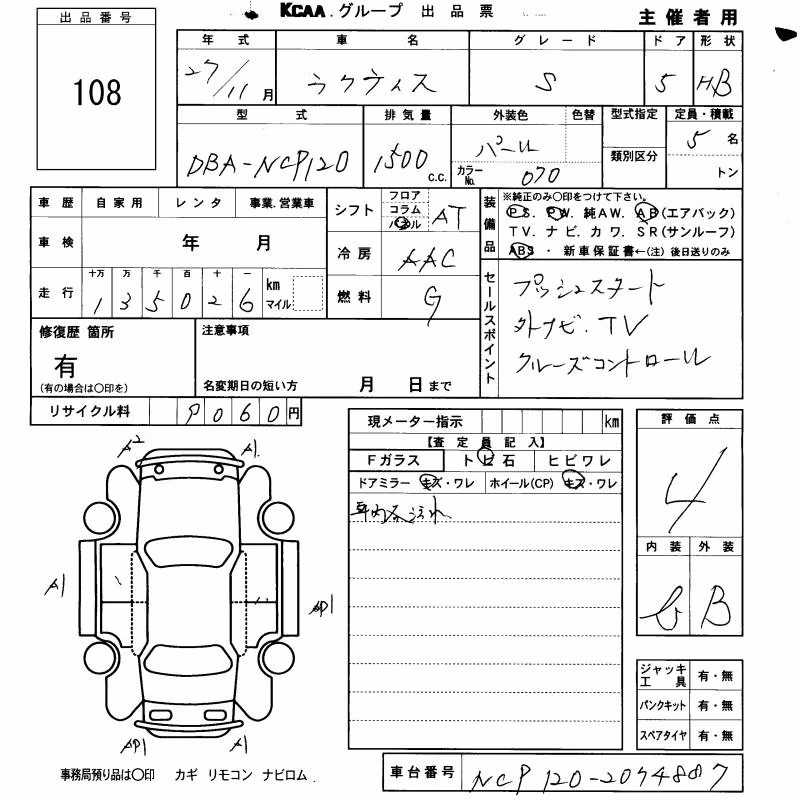 KCAA.グループ 出品票
主催者用
出品番号
108
年式 車名 グレード ドア 形状
27/11月 ラクティス S 5 HB
型式 排気量 外装色 色替 型式指定 定員・積載
DBA-NCP120 1500 c.c. パール 5名
カラーNo. 070 類別区分 トン
車歴 自家用 レンタ 事業.営業車
車検 年 月
走行 十万 万 千 百 十 一 km マイル
135026
シフト フロア コラム パネル AT
冷房 AAC
燃料 G
装備品
※純正のみ〇印をつけて下さい。
PS. PW. 純AW. AB(エアバック)
TV. ナビ. カワ. SR(サンルーフ)
ABS ・ 新車保証書←(注)後日送りのみ
セールスポイント
プッシュスタート
外ナビ.TV
クルーズコントロール
修復歴 箇所
有
(有の場合は〇印を)
注意事項
名変期日の短い方 月 日まで
リサイクル料 9060円
現メーター指示 km
【査定員記入】
Fガラス トビ石 ヒビワレ
ドアミラー キズ・ワレ ホイール(CP) キズ・ワレ
車内汚れ
評価点
4
内装 外装
B
A2 A1
A1 AP1
AP1 A1
ジャッキ工具 有・無
パンクキット 有・無
スペアタイヤ 有・無
事務局預り品は〇印 カギ リモコン ナビロム.
車台番号 NCP120-2074887